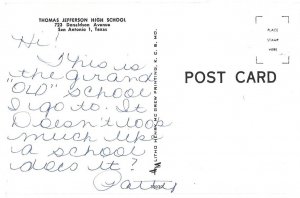 THOMAS JEFFERSON HIGH SCHOOL
723 Donaldson Avenue
San Antonio 1, Texas
Hi!
This is
the grand
"OLD" school
I go to. It
Doesn't look
much like
a school
does it?
Patty
POST CARD
PLACE
STAMP
HERE